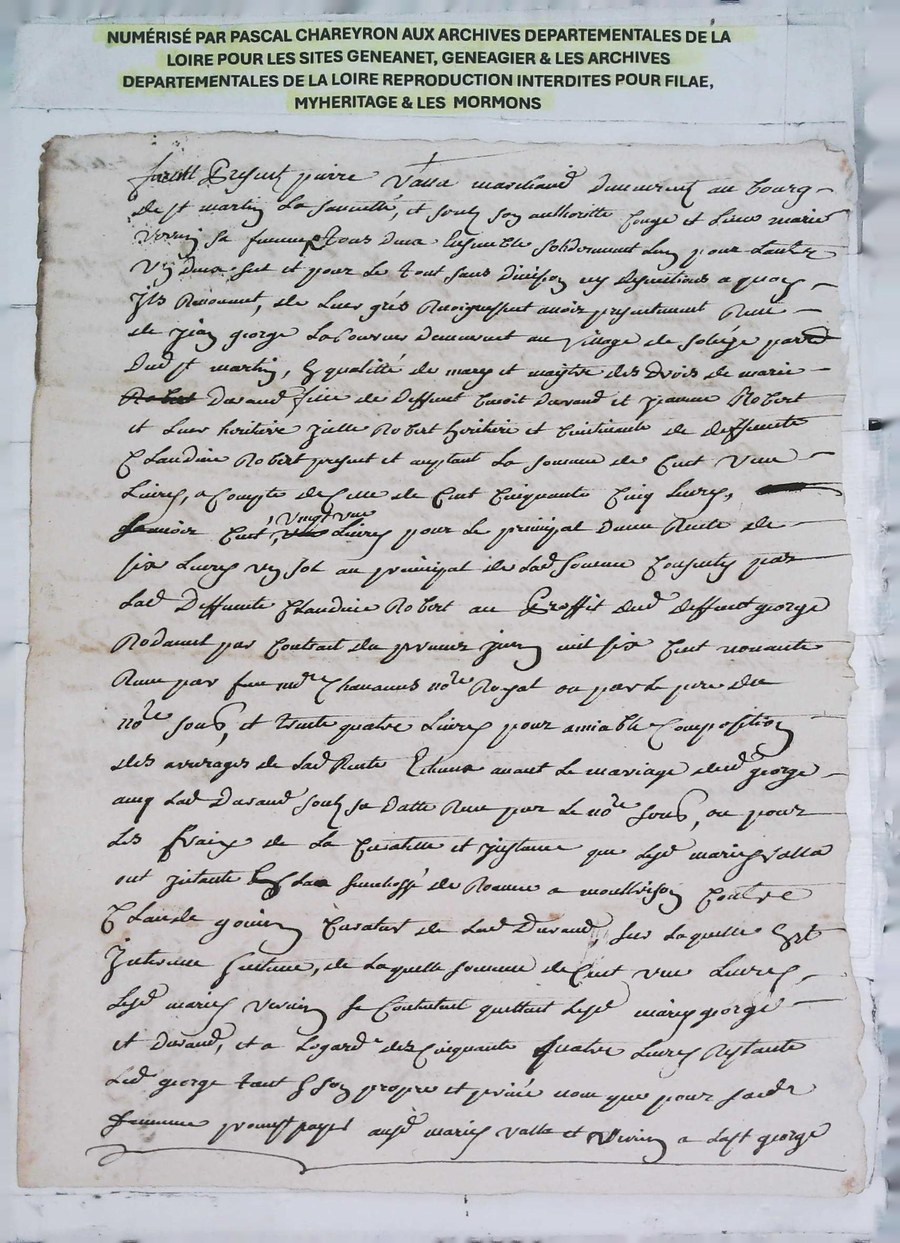 NUMÉRISÉ PAR PASCAL CHAREYRON AUX ARCHIVES DEPARTEMENTALES DE LA
LOIRE POUR LES SITES GENEANET, GENEAGIER & LES ARCHIVES
DEPARTEMENTALES DE LA LOIRE REPRODUCTION INTERDITES POUR FILAE,
MYHERITAGE & LES MORMONS
furent Present pierre Valla marchand demeurent au bourg
de st martin La sauveté, et soubz son authoritte Conge et Lieue marie
Verrin sa femme tous deux Ensemble soliderement Lun pour Lautre
Un deux set et pour Le tout sans divizion ny a quoy
Jls Renoncent, de Leur grés avoir presentement Receu
de Jean george Laboureur demeurent au village de par
Dud st martin, En qualitté de mary et maytre des droits de marie
Robert Durand fille de deffunt benoit durand et Jeanne Robert
et Leur heritiere Robert heritiere et de deffunte
Claudine Robert present et aceptant La somme de Cent une
Livres, a Compte de Celle de Cent Cinquante Cinq Livres,
scavoir Cent vingt une Livres pour Le principal dune Rente de
six Livres un sol au principal de Lad somme par
Lad Deffunte Claudine Robert au Proffit dud deffunt george
Rodamet par Contrat du premier juin mil six Cent nonante
Receu par feu mre Chavanne nore Royal ou par Le pere du
nore soubs, et trente quatre Livres pour amiable Composition
des averages de Lad Rente Echeus avant Le mariage dud george
aveq Lad Durand soubz sa datte Receu par Le nore soubs, ou pour
Les fraix de La et Jnstance que Lesd mariés Valla
ont de Roanne a moulbrison Contre
Claude gonin Curateur de Lad Durand, sur Laquelle Est
Jntervenue, de Laquelle somme de Cent une Livres,
Lesd mariés Verrin se Contentent quittent Lesd mariés george
et Durand, et a Legard des Cinquante quatre Livres Restante
Led george tant En son propre et privé nom que pour sade
femme promet payer ausd mariés Valla et Verrin a george